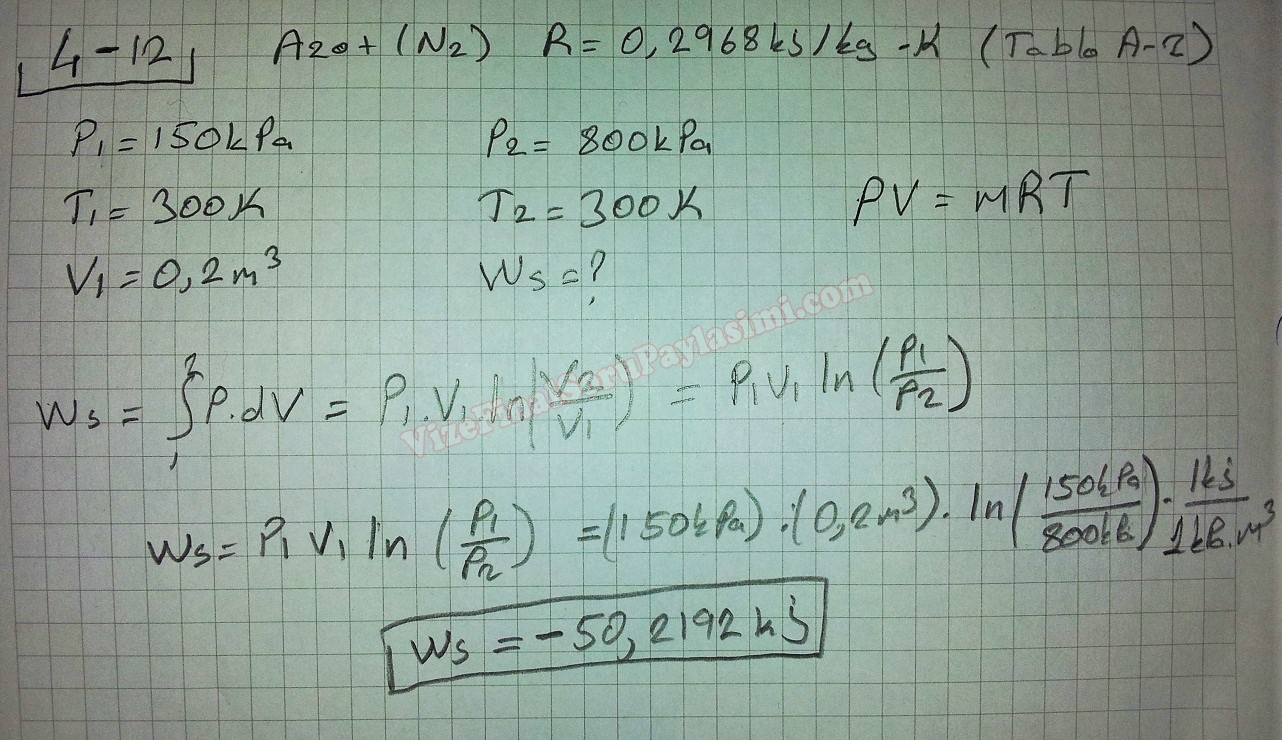 4-12 Azot (N2) R = 0,2968 kj/kg-K (Tablo A-2)
P1 = 150kPa P2 = 800kPa
T1 = 300K T2 = 300K PV = mRT
V1 = 0,2m³ Ws = ?
VizeFinalSoruPaylasimi.com
Ws = ∫₁² P.dV = P1.V1 ln(V2/V1) = P1V1 ln(P1/P2)
Ws = P1 V1 ln (P1/P2) = (150kPa).(0,2m³).ln(150kPa/800kPa).1kj/1kPa.m³
Ws = -50,2192 kj